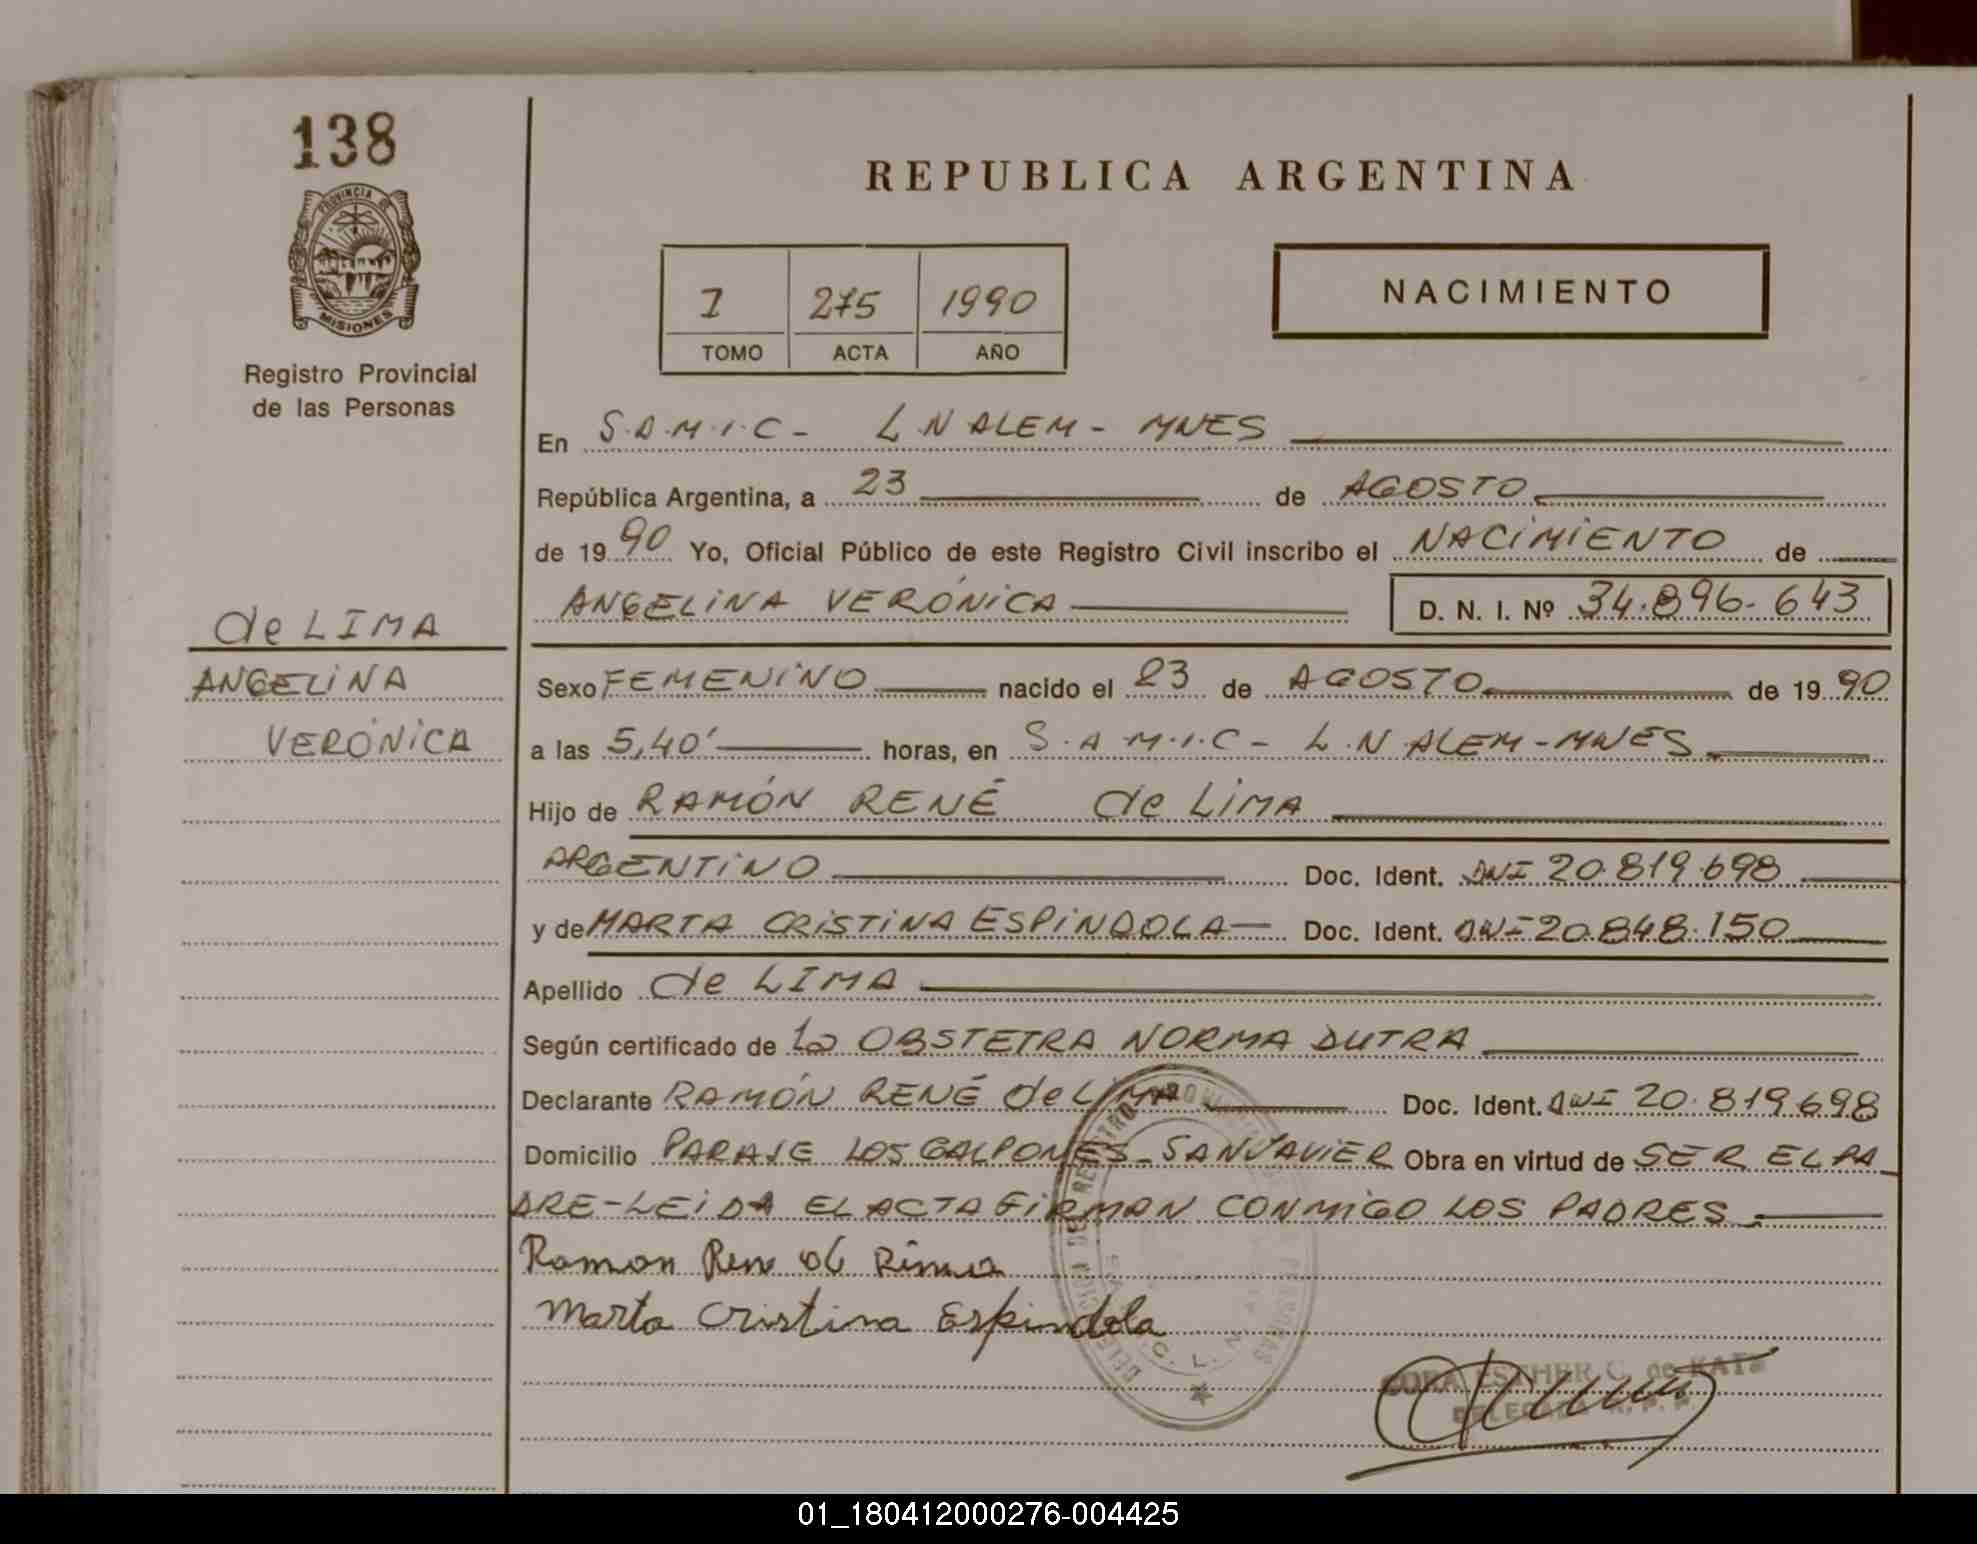 138
PROVINCIA DE
MISIONES
Registro Provincial
de las Personas
de LIMA
ANGELINA
VERÓNICA
REPUBLICA ARGENTINA
I 275 1990
TOMO ACTA AÑO
NACIMIENTO
En S.A.M.I.C- L.N ALEM- MNES
República Argentina, a 23 de AGOSTO
de 1990 Yo, Oficial Público de este Registro Civil inscribo el NACIMIENTO de
ANGELINA VERÓNICA D. N. I. Nº 34.896.643
Sexo FEMENINO nacido el 23 de AGOSTO de 1990
a las 5,40' horas, en S.A.M.I.C- L.N ALEM-MNES
Hijo de RAMÓN RENÉ de LIMA
ARGENTINO Doc. Ident. DNI 20.819.698
y de MARTA CRISTINA ESPINDOLA Doc. Ident. DNI 20.848.150
Apellido de LIMA
Según certificado de la OBSTETRA NORMA DUTRA
Declarante RAMÓN RENÉ de LIMA Doc. Ident. DNI 20.819698
Domicilio PARAJE LOS GALPONES-SAN JAVIER Obra en virtud de SER EL PA
DRE-LEIDA EL ACTA FIRMAN CONMIGO LOS PADRES
Ramon Rene de Lima
Marta Cristina Espindola
ESTHER C. de KATZ
DELEGADA R. P. P.
01_180412000276-004425